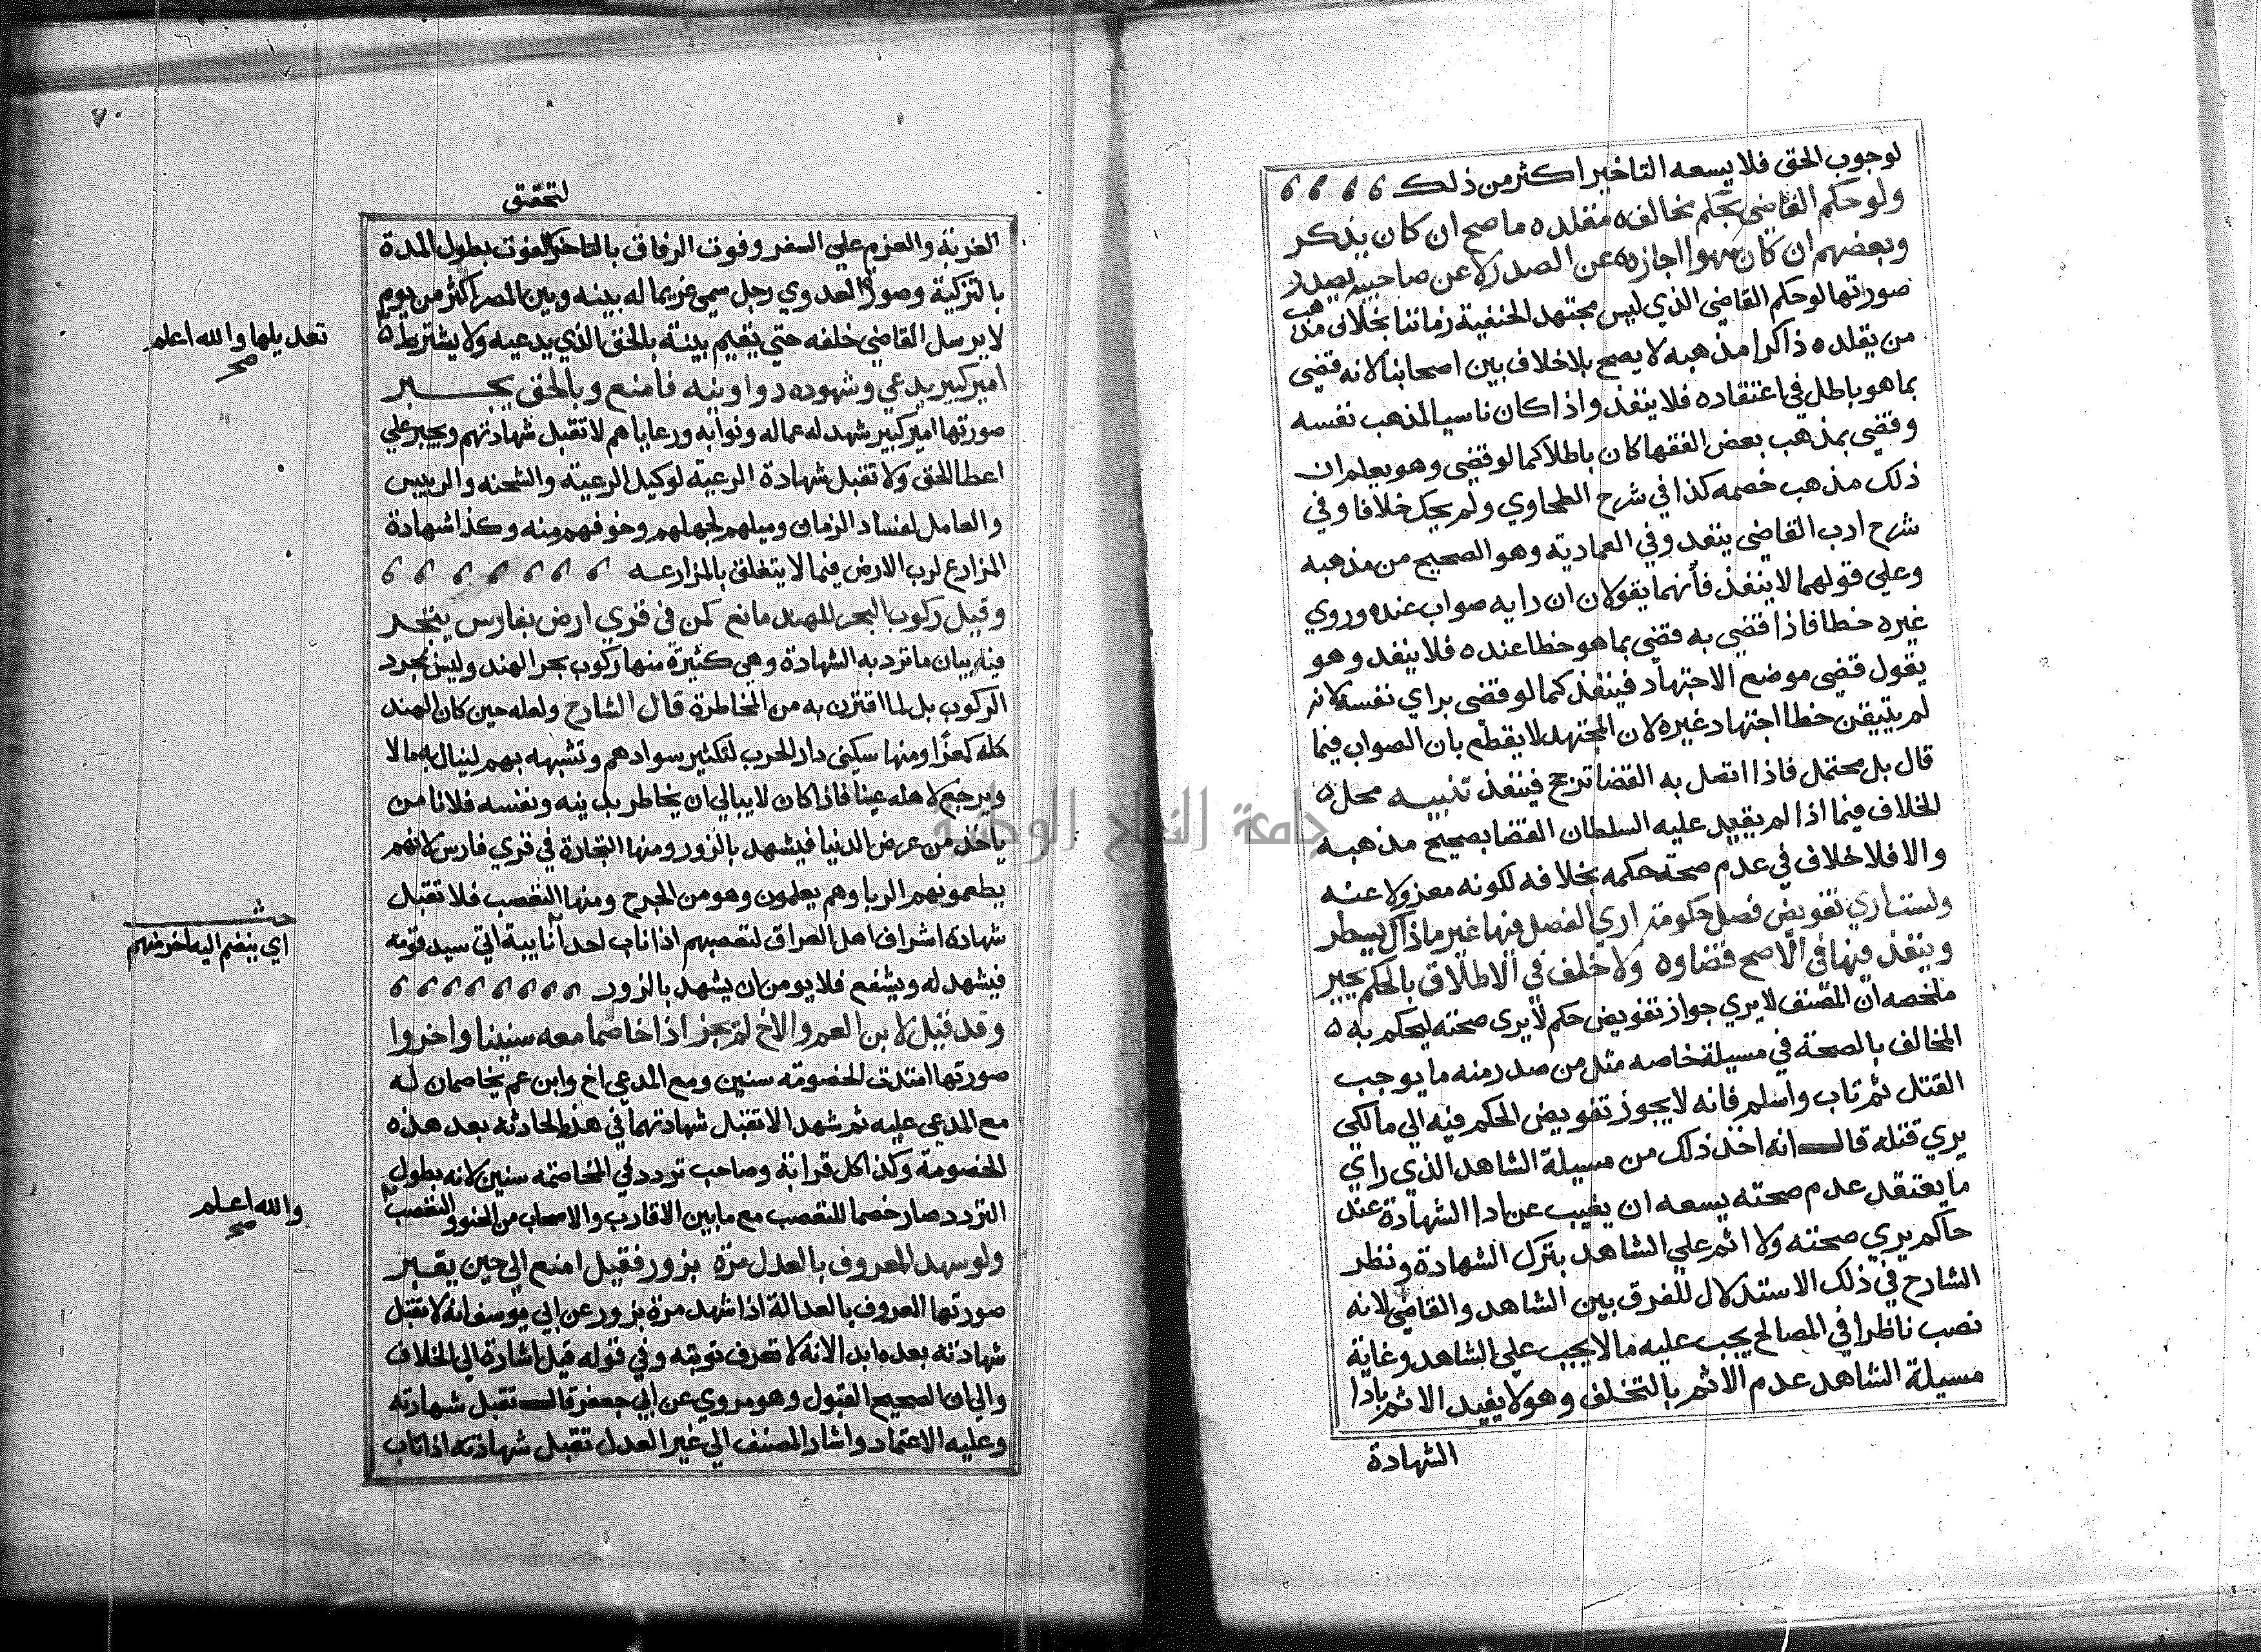 لوجوب الحق فلا يسعه التاخير اكثر من ذلك
ولو حكم القاضي بحكم مخالف مقلده ما صح ان كان يذكر
وبعضهم ان كان سهوا اجازه عن الصدر لا عن صاحبيه يصدر
صورتها لو حكم القاضي الذي ليس مجتهد الحنفية زماننا بخلاف مذهب
من يقلده ذاكرا مذهبه لا يصح بلا خلاف بين اصحابنا لانه قضى
بما هو باطل في اعتقاده فلا ينفذ واذا كان ناسيا لمذهب نفسه
وقضى بمذهب بعض الفقها كان باطلا كما لو قضى وهو يعلم ان
ذلك مذهب خصمه كذا في شرح الطحاوي ولم يحك خلافا وفي
شرح ادب القاضي ينفذ وفي العمادية وهو الصحيح من مذهبه
وعلي قولهما لا ينفذ فانهما يقولان ان رايه صواب عنده وروي
غيره خطا فاذا قضي به قضي بما هو خطا عنده فلا ينفذ وهو
يقول قضى موضع الاجتهاد فينفذ كما لو قضى براي نفسه لانه
لم يتيقن خطا اجتهاد غيره لان المجتهد لا يقطع بان الصواب فيما
قال بل محتمل فاذا اتصل به القضا ترجح فينفذ تنبيه محل
الخلاف فيما اذا لم يقيد عليه السلطان القضا بصحيح مذهبه
والا فلا خلاف في عدم صحة حكمه بخلافه لكونه معزولا عنه
ولست اري تفويض فصل حكومة اري الفصل فيها غير ما ذاك يسطر
وينفذ فيها في الاصح قضاوه ولا خلف في الاطلاق بالحكم يجبر
ملخصه ان المصنف لا يري جواز تفويض حكم لا يرى صحته ليحكم به
المخالف بالصحة في مسيلة خاصه مثل من صدر منه ما يوجب
القتل ثم تاب واسلم فانه لا يجوز تفويض الحكم فيه الي مالكي
يري قتله قال انه اخذ ذلك من مسيلة الشاهد الذي راي
ما يعتقد عدم صحته يسعه ان يغيب عن ادا الشهادة عند
حاكم يري صحته ولا اثم علي الشاهد بترك الشهادة ونظر
الشارح في ذلك الاستدلال للفرق بين الشاهد والقاضي لانه
نصب ناظرا في المصالح يجب عليه ما لا يجب علي الشاهد وغاية
مسيلة الشاهد عدم الاثم بالتخلف وهو لا يفيد الاثم بادا
الشهادة
٧٠
لتحقق
الغربة والعزم علي السفر وفوت الرفاق بالتاخير لفوت بطول المدة
بالتزكية وصورة العدوي رجل سمى غريما له بينه وبين المصر اكثر من يوم
لا يرسل القاضي خلفه حتى يقيم بينة بالحق الذي يدعيه ولا يشترط
تعديلها والله اعلم
صح
امير كبير يدعي وشهوده دواوينه فامنع وبالحق يجبر
صورتها امير كبير شهد له عماله ونوابه ورعاياهم لا تقبل شهادتهم ويجبر علي
اعطا الحق ولا تقبل شهادة الرعية لوكيل الرعية والشحنه والرييس
والعامل لفساد الزمان وميلهم لجهلهم وخوفهم منه وكذا شهادة
المزارع لرب الارض فيما لا يتعلق بالمزارعه
وقيل ركوب البحر للهند مانع كمن في قري ارض بفارس يتجر
فيه بيان ما ترد به الشهادة وهي كثيرة منها ركوب بحر الهند وليس بمجرد
الركوب بل لما اقترن به من المخاطرة قال الشارح ولعله حين كان الهند
كله كفرا ومنها سكنى دار الحرب لتكثير سوادهم وتشبهه بهم لينال به مالا
ويرجع لاهله غنيا فاذا كان لا يبالي ان يخاطر بدينه ونفسه فلا نامن
ياخذ من عرض الدنيا فيشهد بالزور ومنها التجارة في قري فارس لانهم
يطعمونهم الربا وهم يعلمون وهو من الجرح ومنها التعصب فلا تقبل
شهادة اشراف اهل العراق لتعصبهم اذا ناب احدا نايبة اتي سيد قومه
حش
اي ينضم اليه اخر منهم
فيشهد له ويشفع فلا يومن ان يشهد بالزور
وقد قيل لابن العم والاخ لم يجز اذا خاصما معه سنينا واخروا
صورتها امتدت الخصومة سنين ومع المدعي اخ وابن عم يخاصمان له
مع المدعي عليه ثم شهدا لا تقبل شهادتهما في هذه الحادثة بعد هذه
الخصومة وكذا كل قرابة وصاحب تردد في المخاصمة سنين لانه بطول
التردد صار خصما للتعصب مع ما بين الاقارب والاصحاب من الحنو والتعصب
والله اعلم
صح
ولو شهد المعروف بالعدل مرة بزور فقيل امنع الي حين يقبر
صورتها المعروف بالعدالة اذا شهد مرة بزور عن ابي يوسف انه لا تقبل
شهادته بعده ابدا لانه لا تعرف توبته وفي قوله قيل اشارة الي الخلاف
والي ان الصحيح القبول وهو مروي عن ابي جعفر قال تقبل شهادته
وعليه الاعتماد واشار المصنف الي غير العدل تقبل شهادته اذا تاب
جامعة النجاح الوطنية